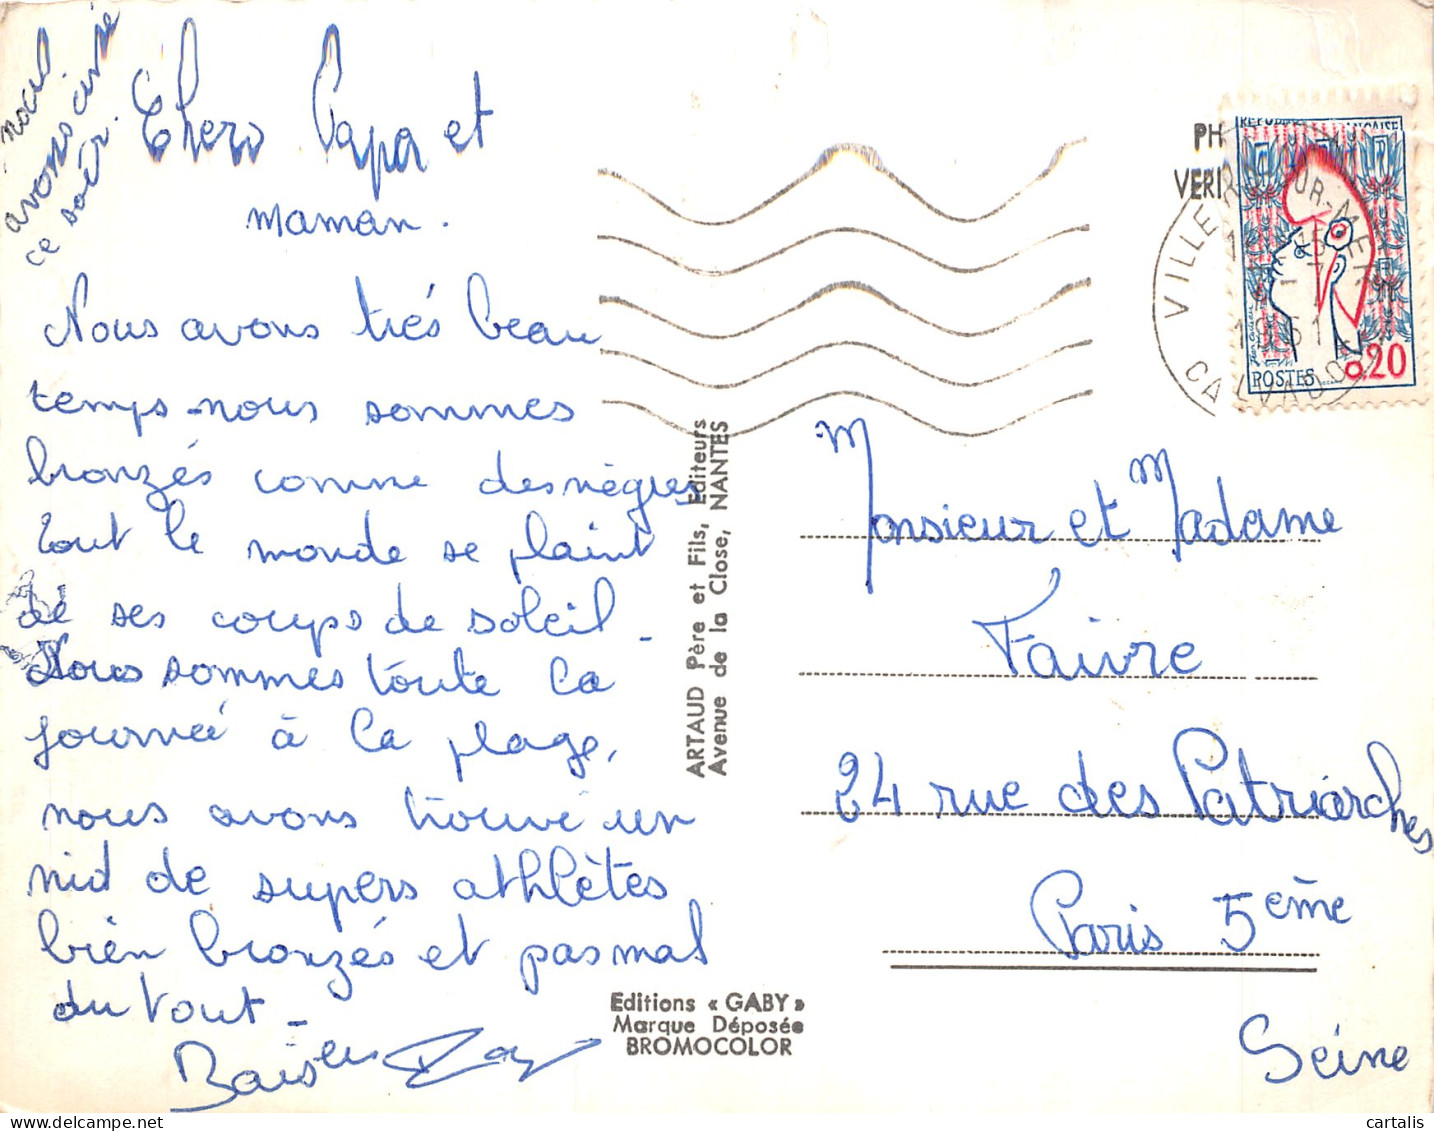 nous
avons
ce soir.
Chers Papa et
maman.
Nous avons trés beau
temps nous sommes
bronzés comme des nègres
tout le monde se plaint
de ses coups de soleil _
Nous sommes toute la
journée à la plage,
nous avons trouvé un
nid de supers athlètes
bien bronzés et pas mal
du tout _
Baisers
ARTAUD Père et Fils, Editeurs
Avenue de la Close, NANTES
Editions « GABY »
Marque Déposée
BROMOCOLOR
PH
VERI
VILLERS-SUR-MER
1961
CALVADOS
REPUBLIQUE FRANÇAISE
POSTES
0,20
Monsieur et Madame
Faivre
24 rue des Patriarches
Paris 5ème
Seine
cartalis